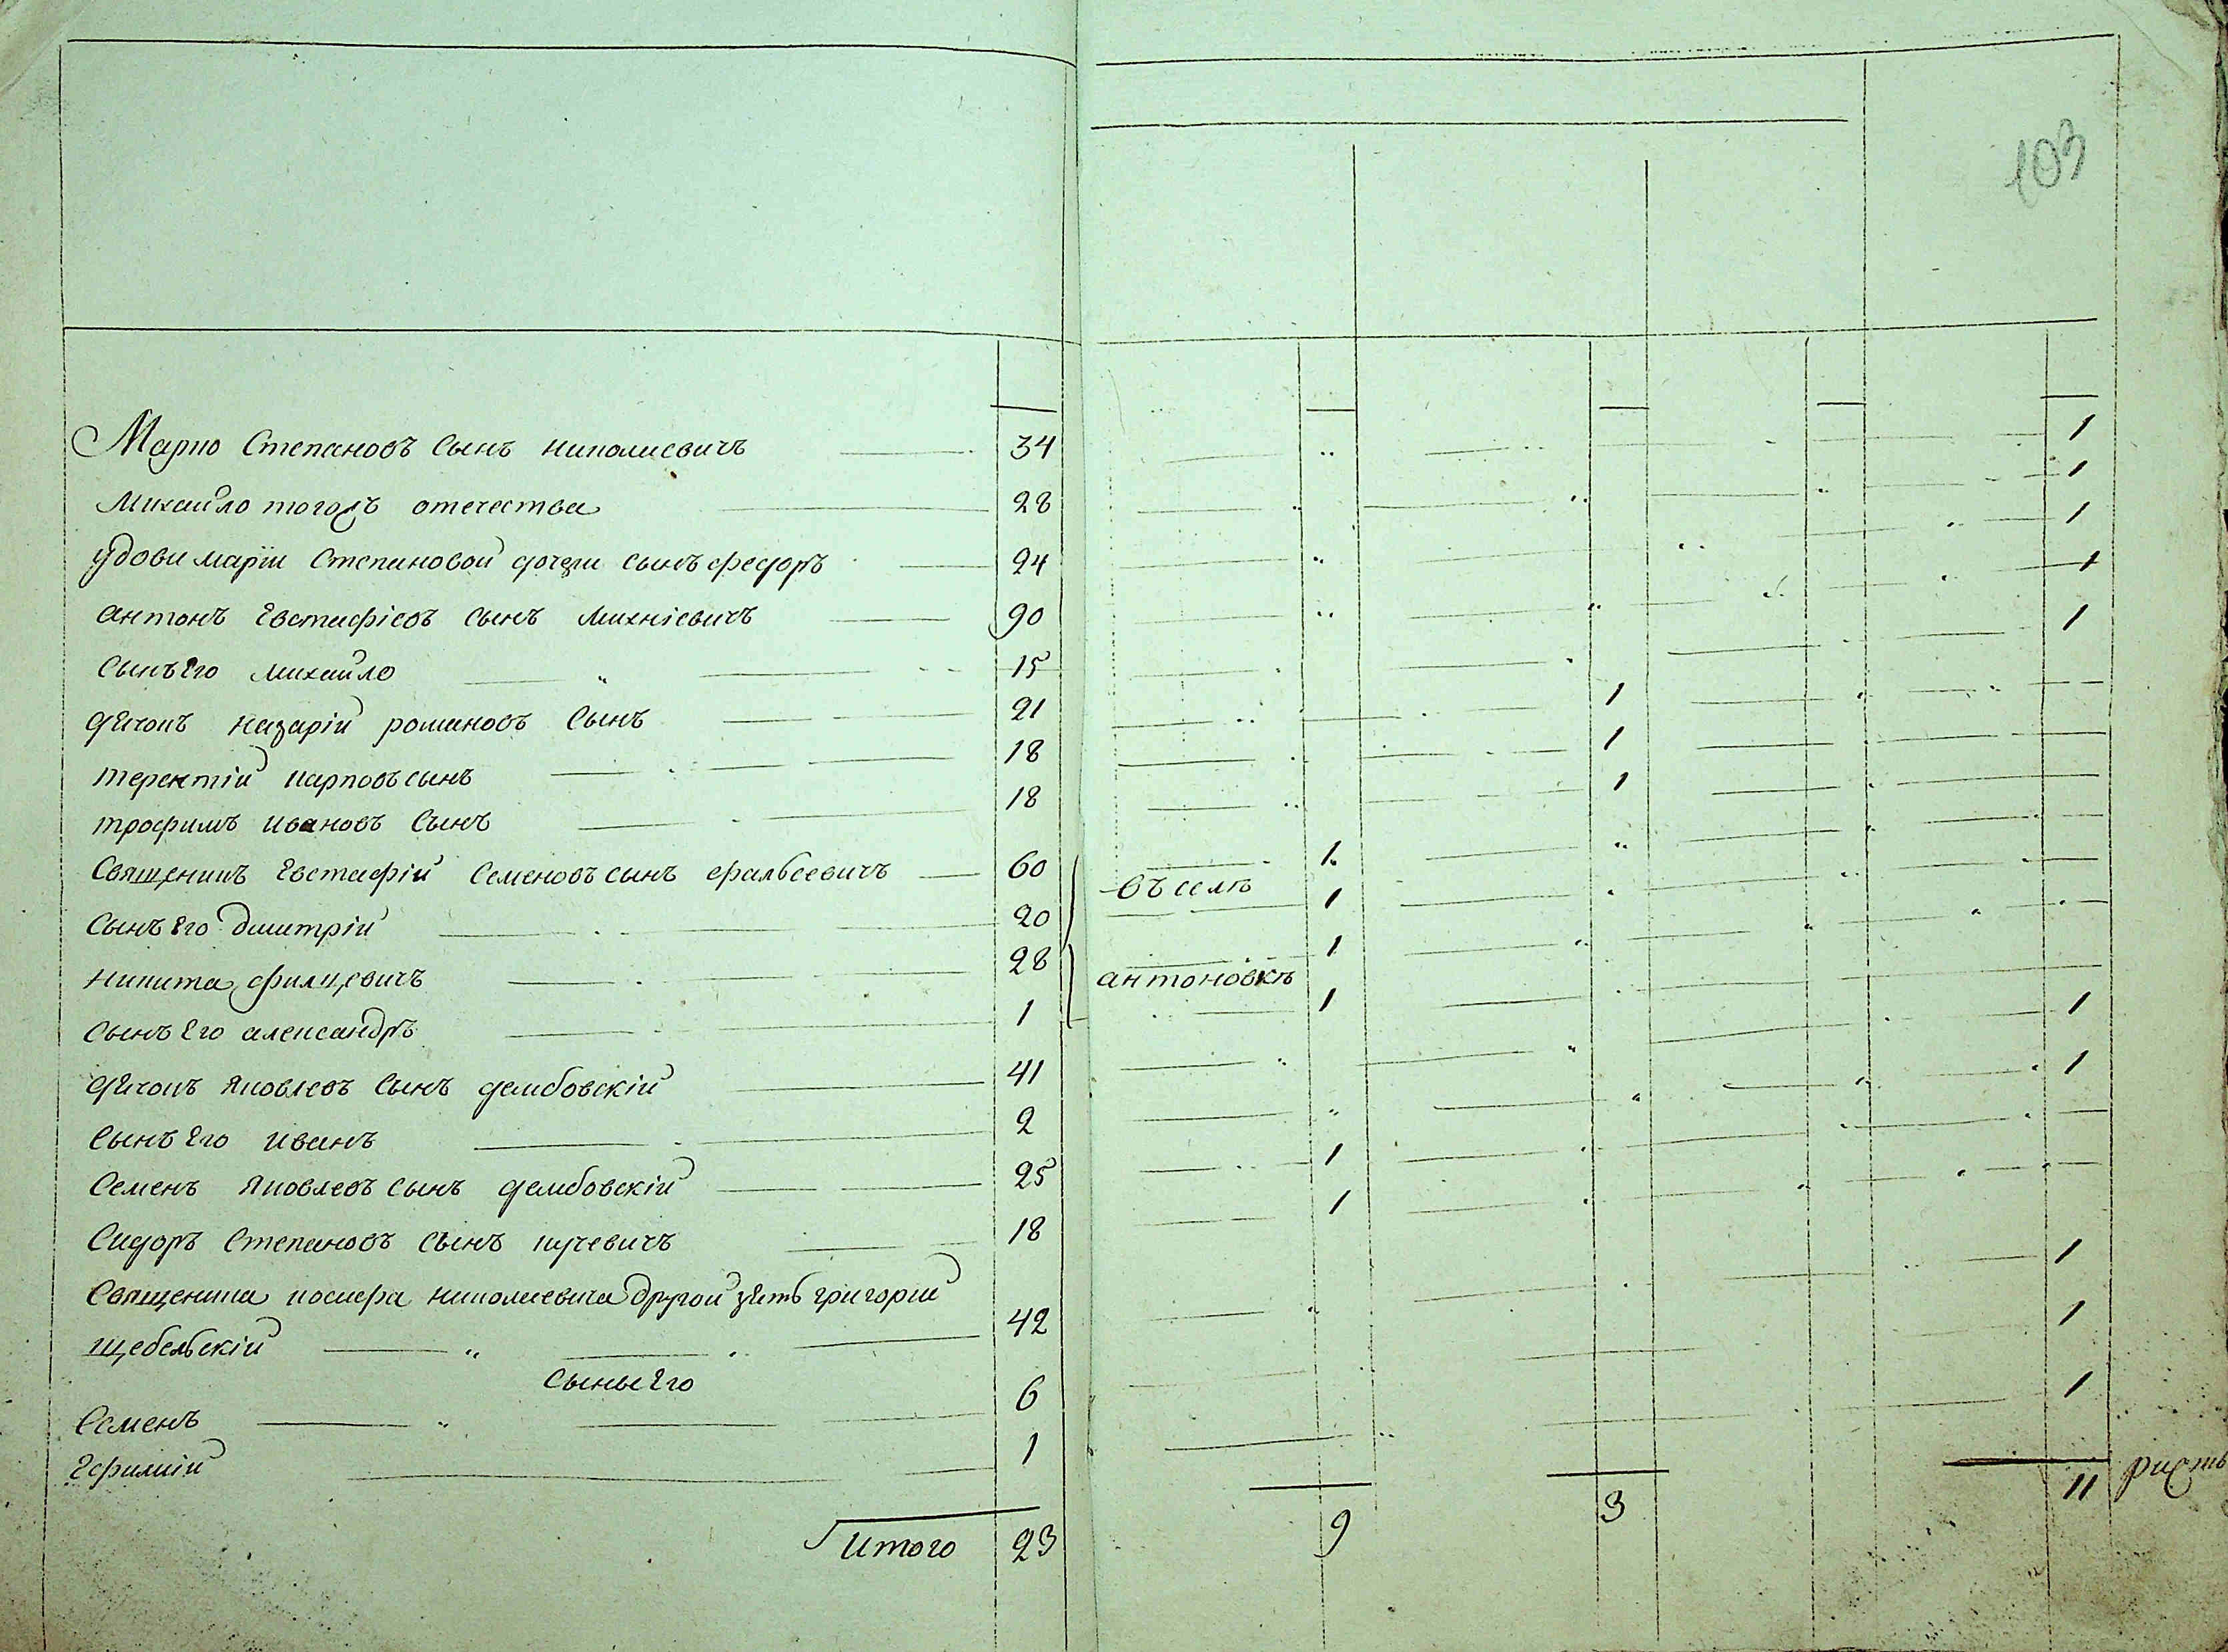 103
Марко Степановъ Сынъ николиевичъ 34 1
Михайло тогожъ отечества 28 1
удови маріи Степановой дочери сынъ федоръ 24 1
антонъ Евстафіевъ Сынъ Михніевичъ 90 1
Сынъ Его Михайло 15 1
дячокъ назарій романовъ Сынъ 21 1
терентій карповъ сынъ 18 1
трофимъ Ивановъ Сынъ 18 1
Священикъ Евстафій Семеновъ сынъ 60 въ селѣ 1
Сынъ Его Дмитрій 20 1
никита 28 антоновкѣ 1
Сынъ Его александръ 1 1
дячокъ Яковлевъ Сынъ дембовскій 41 1
Сынъ Его иванъ 2 1
Семенъ Яковлевъ сынъ дембовскій 25 1
Сидоръ Степановъ Сынъ кучевичъ 18 1
Священика иосифа николиевича другой зять григорій
щебельскій 42 1
Сыны Его
Семенъ 6 1
Ефимій 1 1
Итого 23 9 3 11